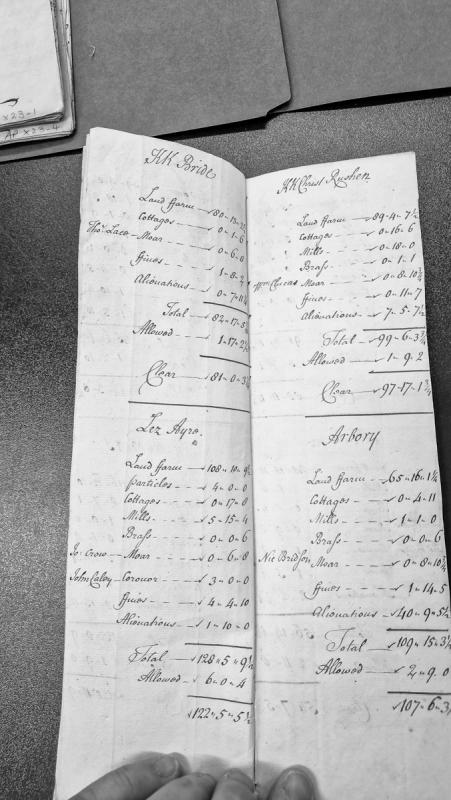 x23-1
AP x23-4
KK Bride
Land ffarm - 80-13-
Cottages - 0-1-6
Tho: Lace - Moar - 0-6-0
ffines - 1-8-
Alienations - 0-7-11
Total - 82-17-
Allowed - 1-17-2½
Clear - 81-0-3
Lez Ayre.
Land ffarm - 108-10-9½
particles - 4-0-0
Cottages - 0-17-8
Mills - 5-15-4
Brass - 0-0-6
Jo: Crow - Moar - 0-6-8
John Caley - Coroner - 3-0-0
ffines - 4-4-10
Alienations - 1-10-0
Total - 128-5-9½
Allowed - 6-0-4
122-5-5½
KK Christ Rushen
Land ffarm - 89-4-7½
Cottages - 0-16-6
Mills - 0-18-0
Brass - 0-1-1
Wm Clucas Moar - 0-8-10¾
ffines - 0-11-7
Alienations - 7-5-7½
Total - 99-6-3¾
Allowed - 1-9-2
Clear - 97-17-1¾
Arbory
Land ffarm - 65-16-1¼
Cottages - 0-4-11
Mills - 1-1-0
Brass - 0-0-6
Nic Bridson Moar - 0-8-10¾
ffines - 1-14-5
Alienations - 40-9-5½
Total - 109-15-3½
Allowed - 2-9-0
107-6-3